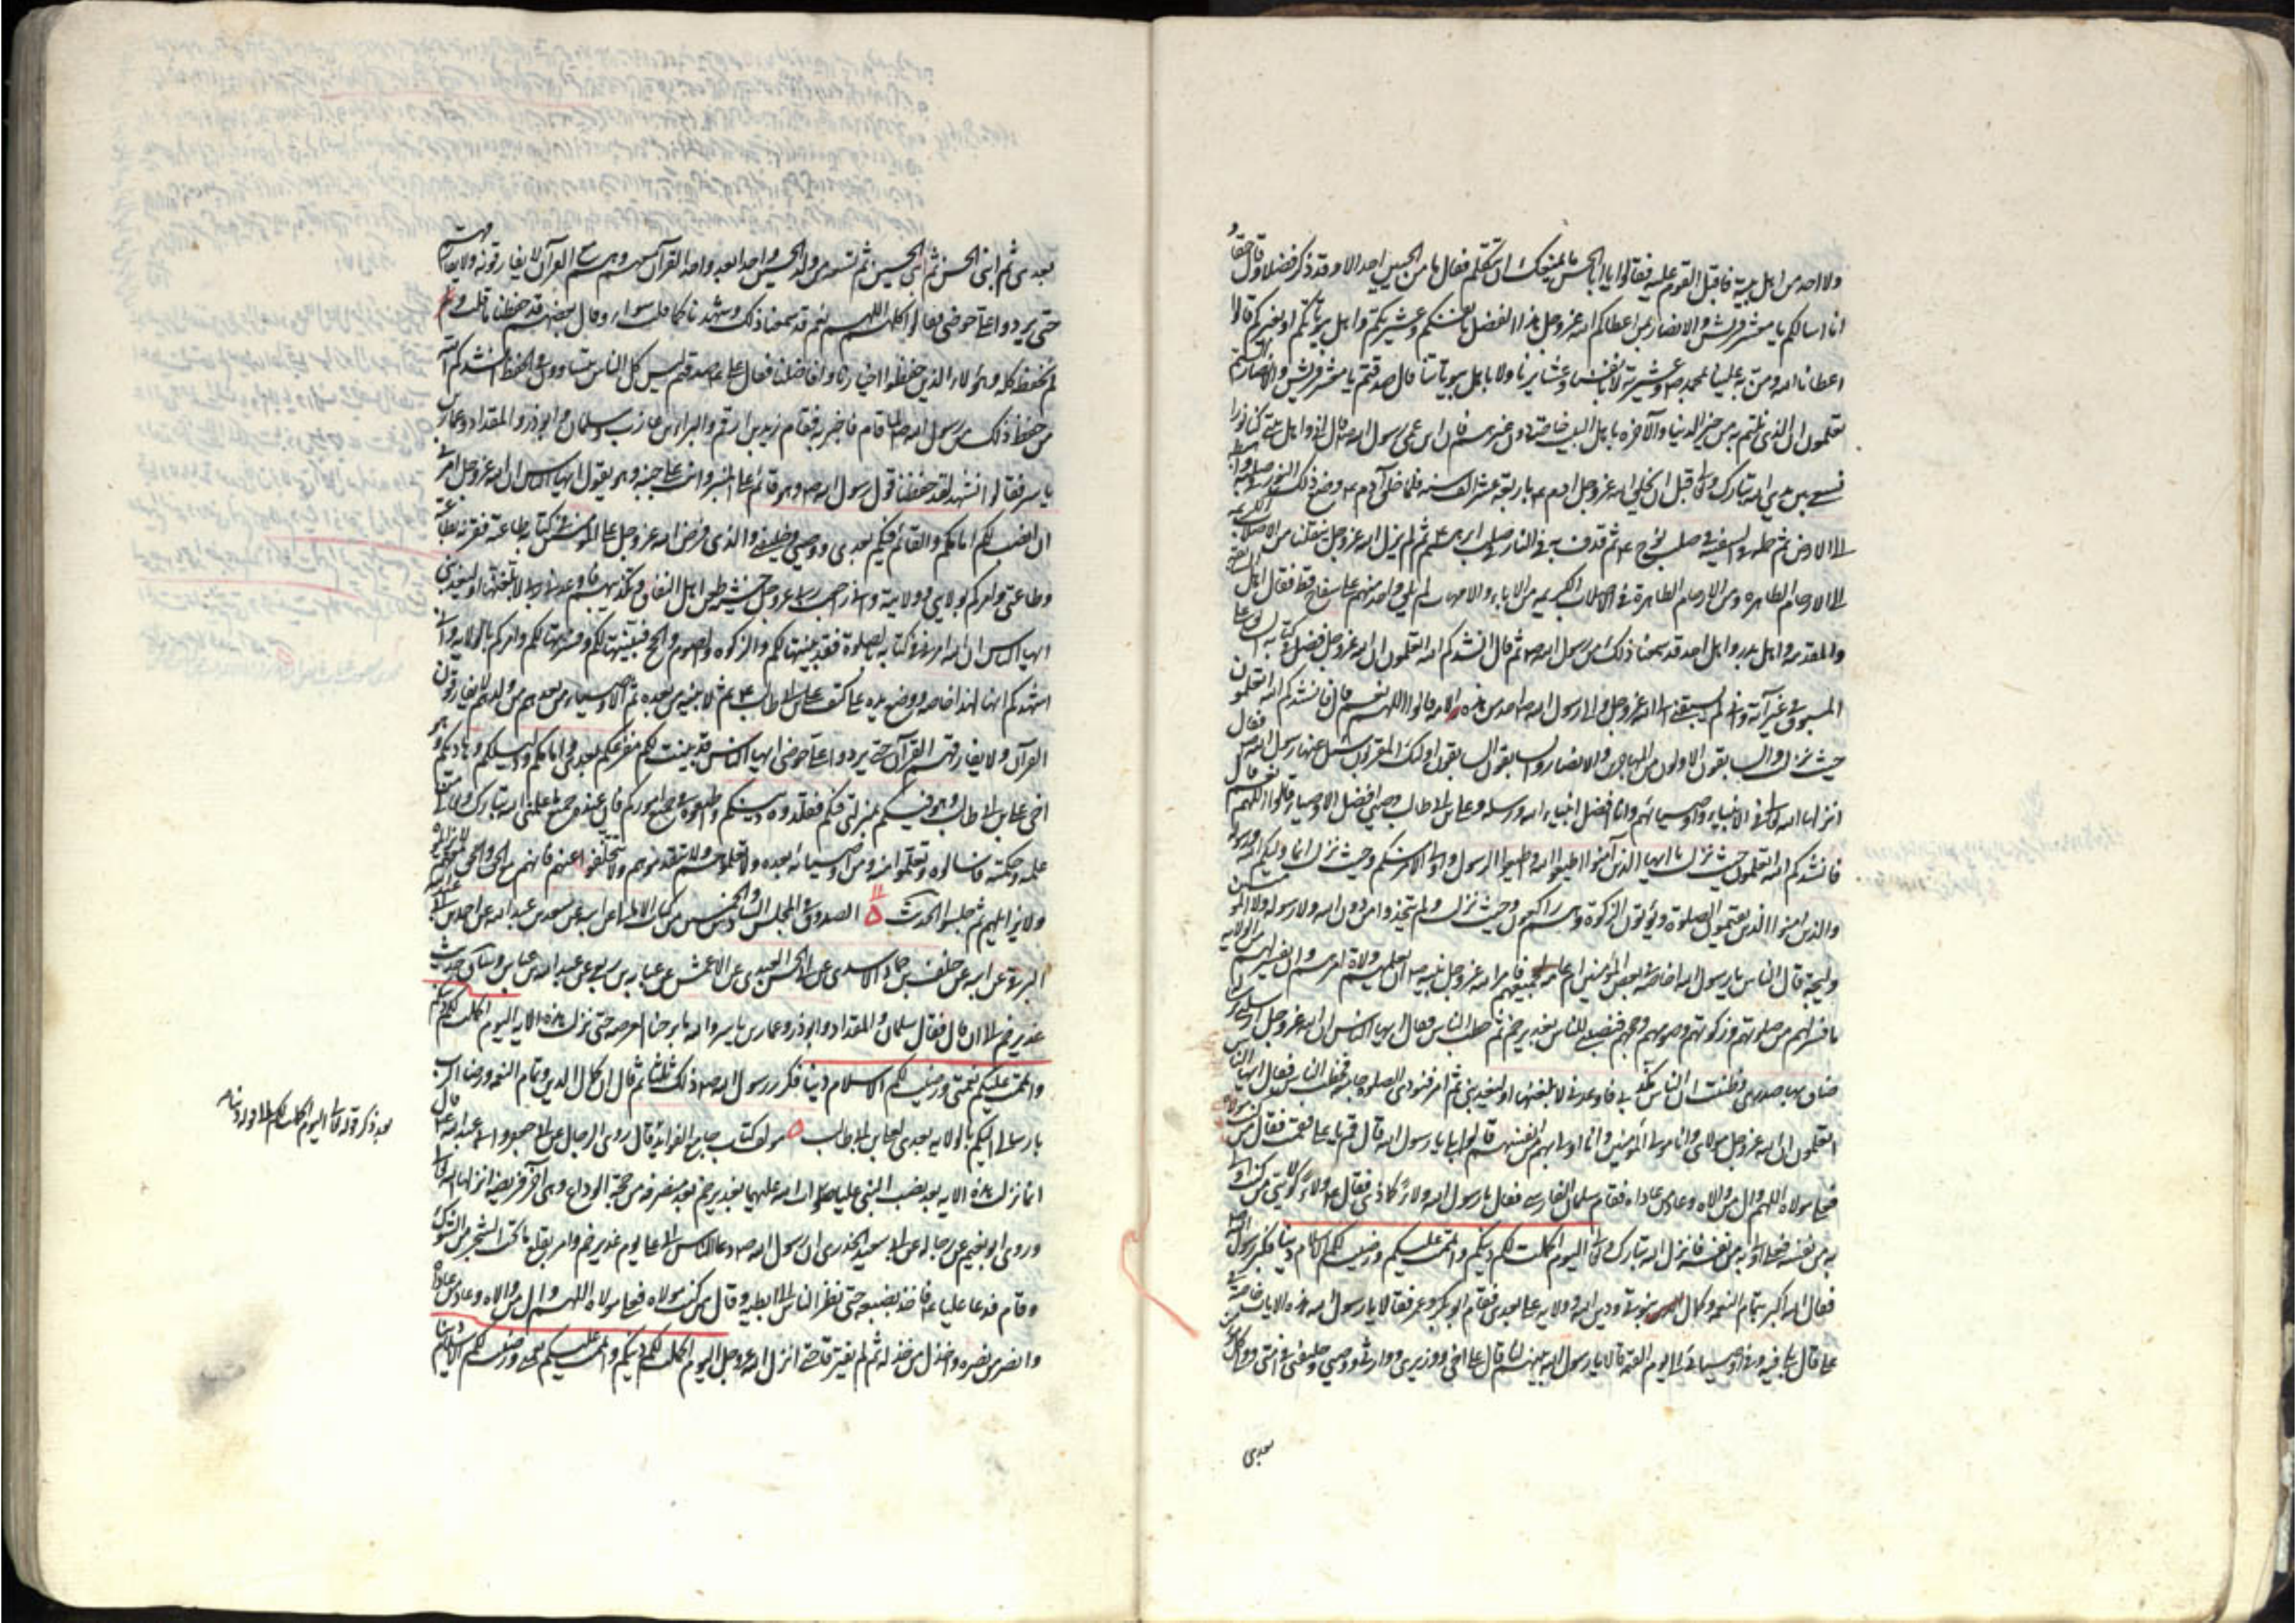 ولا احد من اهل بيته فاقبل القوم عليه فقالوا يا ابا الحسن ما يمنعك ان تتكلم فقال ما من الحيين احد الا وقد ذكر فضلا وقال حقا و
انا اسالكم يا معشر قريش والانصار بمن اعطاكم الله عز وجل هذا الفضل بانفسكم وعشيرتكم واهل بيوتاتكم او بغيركم قالوا
اعطانا الله ومن به علينا بمحمد ص وعشيرته لا بانفسنا وعشايرنا ولا باهل بيوتاتنا قال صدقتم يا معشر قريش والانصار الستم
تعلمون ان الذي نلتم به من خير الدنيا والآخرة منا اهل البيت خاصة دون غيرهم فان ابن عمي رسول الله ص قال اني واهل بيتي كنا نورا
يسعى بين يدي الله تبارك وتعالى قبل ان يخلق الله عز وجل ادم ع باربعة عشر الف سنة فلما خلق آدم ع وضع ذلك النور في صلبه واهبطه
الى الارض ثم حمله في السفينة في صلب نوح ع ثم قذف به في النار في صلب ابرهيم ع ثم لم يزل الله عز وجل ينقلنا من الاصلاب الكريمة
الى الارحام الطاهرة ومن الارحام الطاهرة الى الاصلاب الكريمة من الاباء والامهات لم يلق واحد منهم على سفاح قط فقال اهل السابقة
والقدمة واهل بدر واهل احد قد سمعنا ذلك من رسول الله ص ثم قال انشدكم الله اتعلمون ان الله عز وجل فضل في كتابه السابق على
المسبوق في غير آية واني لم يسبقني الى الله عز وجل والى رسول الله ص احد من هذه الامة قالوا اللهم نعم قال فانشدكم الله اتعلمون
حيث نزلت والسابقون الاولون من المهاجرين والانصار والسابقون السابقون اولئك المقربون سئل عنها رسول الله ص فقال
انزلها الله تعالى في الانبياء واوصيائهم وانا افضل انبياء الله ورسله وعلي بن ابي طالب وصيي افضل الاوصياء قالوا اللهم نعم قال
فانشدكم الله اتعلمون حيث نزلت يا ايها الذين آمنوا اطيعوا الله واطيعوا الرسول واولي الامر منكم وحيث نزلت انما وليكم الله ورسوله
والذين امنوا الذين يقيمون الصلوة ويؤتون الزكوة وهم راكعون وحيث نزلت ولم يتخذوا من دون الله ولا رسوله ولا المؤمنين
وليجة قال الناس يا رسول الله اخاصة في بعض المؤمنين ام عامة لجميعهم فامر الله عز وجل نبيه ص ان يعلمهم ولاة امرهم وان يفسر لهم من الولاية
ما فسر لهم من صلوتهم وزكوتهم وصومهم وحجهم فنصبني للناس بغدير خم ثم خطب الناس فقال ايها الناس ان الله عز وجل ارسلني برسالة
ضاق بها صدري وظننت ان الناس مكذبي فاوعدني لابلغنها او ليعذبني ثم امر فنودي الصلوة جامعة فخطب الناس فقال ايها الناس
اتعلمون ان الله عز وجل مولاي وانا مولى المؤمنين وانا اولى بهم من انفسهم قالوا بلى يا رسول الله قال قم يا علي فقمت فقال من كنت مولاه
فعلي مولاه اللهم وال من والاه وعاد من عاداه فقام سلمان الفارسي فقال يا رسول الله ولاء كماذا فقال ع ولاء كولايتي من كنت اولى
به من نفسه فعلي اولى به من نفسه فانزل الله تبارك وتعالى اليوم اكملت لكم دينكم واتممت عليكم ورضيت لكم الاسلام دينا فكبر رسول الله
فقال الله اكبر بتمام النعمة وكمال نبوتي ودين الله وولاية علي بعدي فقام ابو بكر وعمر فقالا يا رسول الله هذه الايات خاصة في
علي قال بلى فيه وفي اوصيائي الى يوم القيمة قالا يا رسول الله بينهم لنا قال علي اخي ووزيري ووارثي ووصيي وخليفتي في امتي وولي كل مؤمن
بعدي
بعدي ثم ابني الحسن ثم ابني الحسين ثم تسعة من ولد الحسين واحد بعد واحد القرآن معهم وهم مع القرآن لا يفارقونه ولا يفارقهم
حتى يردوا علي حوضي فقالوا كلهم اللهم نعم قد سمعنا ذلك وشهدنا كما قلت سواء وقال بعضهم قد حفظنا ما قلت ولم
نحفظ كله وهؤلاء الذين حفظوا اخيارنا وافاضلنا فقال علي ع صدقتم ليس كل الناس يتساوون في الحفظ انشدكم الله
من حفظ ذلك من رسول الله ص لما قام فاخبر به فقام زيد بن ارقم والبراء بن عازب وسلمان وابو ذر والمقداد وعمار بن
ياسر فقالوا نشهد لقد حفظنا قول رسول الله ص وهو قائم على المنبر وانت على جنبه وهو يقول ايها الناس ان الله عز وجل امرني
ان انصب لكم امامكم والقائم فيكم بعدي ووصيي وخليفتي والذي فرض الله عز وجل على المؤمنين في كتابه طاعته فقرنه بطاعته
وطاعتي وامركم بولايتي وولايته واني راجعت ربي عز وجل خشية طعن اهل النفاق وتكذيبهم فاوعدني ربي لابلغنها او ليعذبني
ايها الناس ان الله امركم في كتابه بالصلوة فقد بينتها لكم والزكوة والصوم والحج فبينتها لكم وفسرتها لكم وامركم بالولاية واني
اشهدكم انها لهذا خاصة ووضع يده على كتف علي بن ابي طالب ع ثم لابنيه من بعده ثم للاوصياء من بعدهم من ولدهم لا يفارقون
القرآن ولا يفارقهم القرآن حتى يردوا علي حوضي ايها الناس قد بينت لكم مفزعكم بعدي وامامكم ودليلكم وهاديكم وهو
اخي علي بن ابي طالب وهو فيكم بمنزلتي فيكم فقلدوه دينكم واطيعوه في جميع اموركم فان عنده جميع ما علمني الله تبارك وتعالى من
علمه وحكمته فاسالوه وتعلموا منه ومن اوصيائه بعده ولا تعلموهم ولا تتقدموهم ولا تتخلفوا عنهم فانهم مع الحق والحق معهم لا يزايلونه
ولا يزايلهم ثم جلسوا الحديث ه الصدوق في المجلس من كتاب الامالي عن ابيه عن سعد بن عبد الله عن احمد بن
البرقي عن ابيه عن خلف بن حماد الاسدي عن ابي الحسن العبدي عن الاعمش عن عباية بن ربعي عن عبد الله بن عباس وساق حديث
غدير خم الى ان قال فقال سلمان والمقداد وابو ذر وعمار بن ياسر والله ما برحنا العرصة حتى نزلت هذه الاية اليوم اكملت لكم دينكم
واتممت عليكم نعمتي ورضيت لكم الاسلام دينا فكرر رسول الله ص ذلك ثلثا ثم قال ان كمال الدين وتمام النعمة ورضا الرب
بارسالي اليكم بالولاية بعدي لعلي بن ابي طالب ه مولف كتاب جامع الفوائد قال روى الرجال عن ابي جعفر وابي عبد الله ع قال
انما نزلت هذه الاية بعد نصب النبي عليا صلوات الله عليهما بغدير خم بعد منصرفه من حجة الوداع وهي آخر فريضة انزلها الله تعالى
وروى ابو نعيم عن رجاله عن ابي سعيد الخدري ان رسول الله ص دعا الناس الى علي يوم غدير خم وامر بقلع ما تحت الشجر من الشوك
وقام فدعا عليا ع فاخذ بضبعيه حتى نظر الناس الى ابطيه وقال من كنت مولاه فعلي مولاه اللهم وال من والاه وعاد من عاداه
وانصر من نصره واخذل من خذله ثم لم يفترقا حتى انزل الله عز وجل اليوم اكملت لكم دينكم واتممت عليكم نعمتي ورضيت لكم الاسلام دينا
بعد ذكر قوله تعالى اليوم اكملت لكم